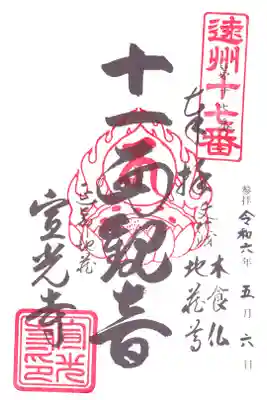 遠州十七番
参拝 令和六年 五月六日
奉拝
木食仏
地蔵尊
十一面観音
宝光寺